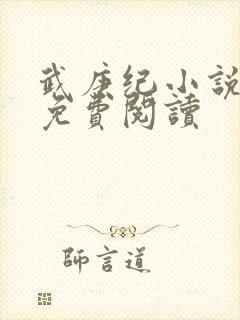 武庚纪小說
免費閱讀
師言道